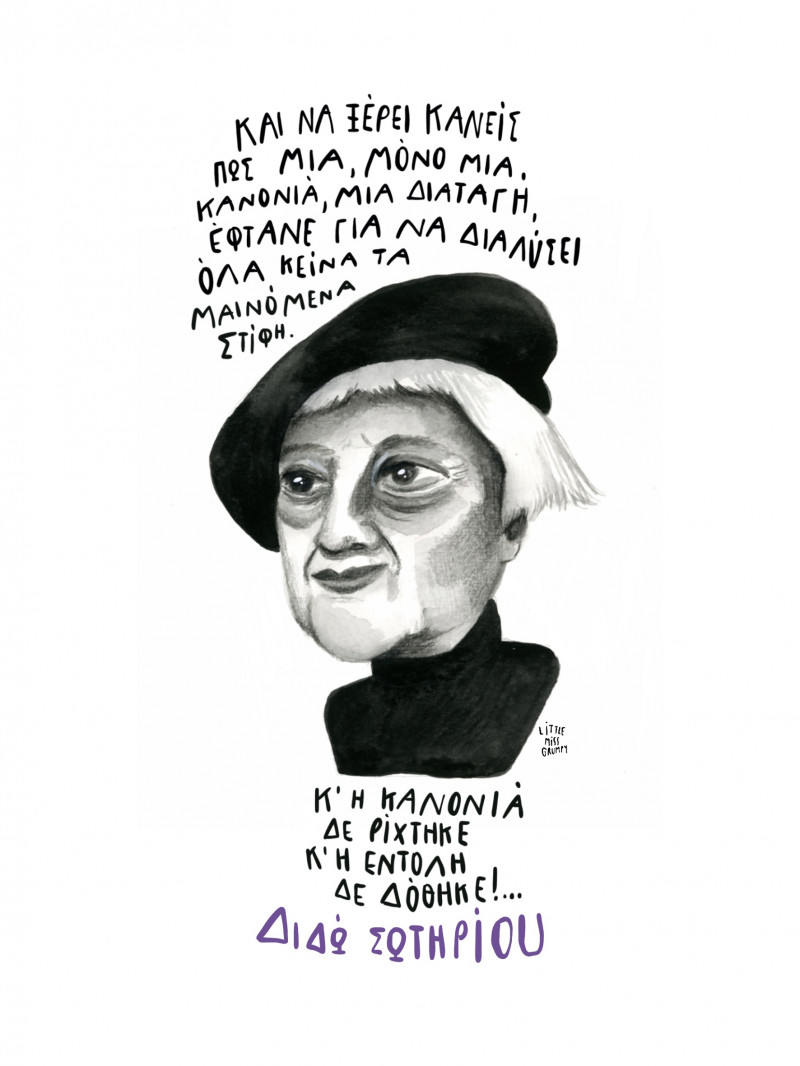 ΚΑΙ ΝΑ ΞΈΡΕΙ ΚΑΝΕΊΣ
ΠΩΣ ΜΙΑ, ΜΌΝΟ ΜΙΑ.
ΚΑΝΟΝΙΆ, ΜΙΑ ΔΙΑΤΑΓΗ,
ΈΦΤΑΝΕ ΓΙΑ ΝΑ ΔΙΑΛΎΣΕΙ
ΌΛΑ ΚΕΊΝΑ ΤΑ
ΜΑΙΝΌΜΕΝΑ
ΣΤΊΦΗ.
LITTLE
MISS
GRUMPY
Κ' Η ΚΑΝΟΝΙΆ
ΔΕ ΡΊΧΤΗΚΕ
Κ' Η ΕΝΤΟΛΗ
ΔΕ ΔΌΘΗΚΕ!...
ΔΙΔΏ ΣΩΤΗΡΊΟΥ